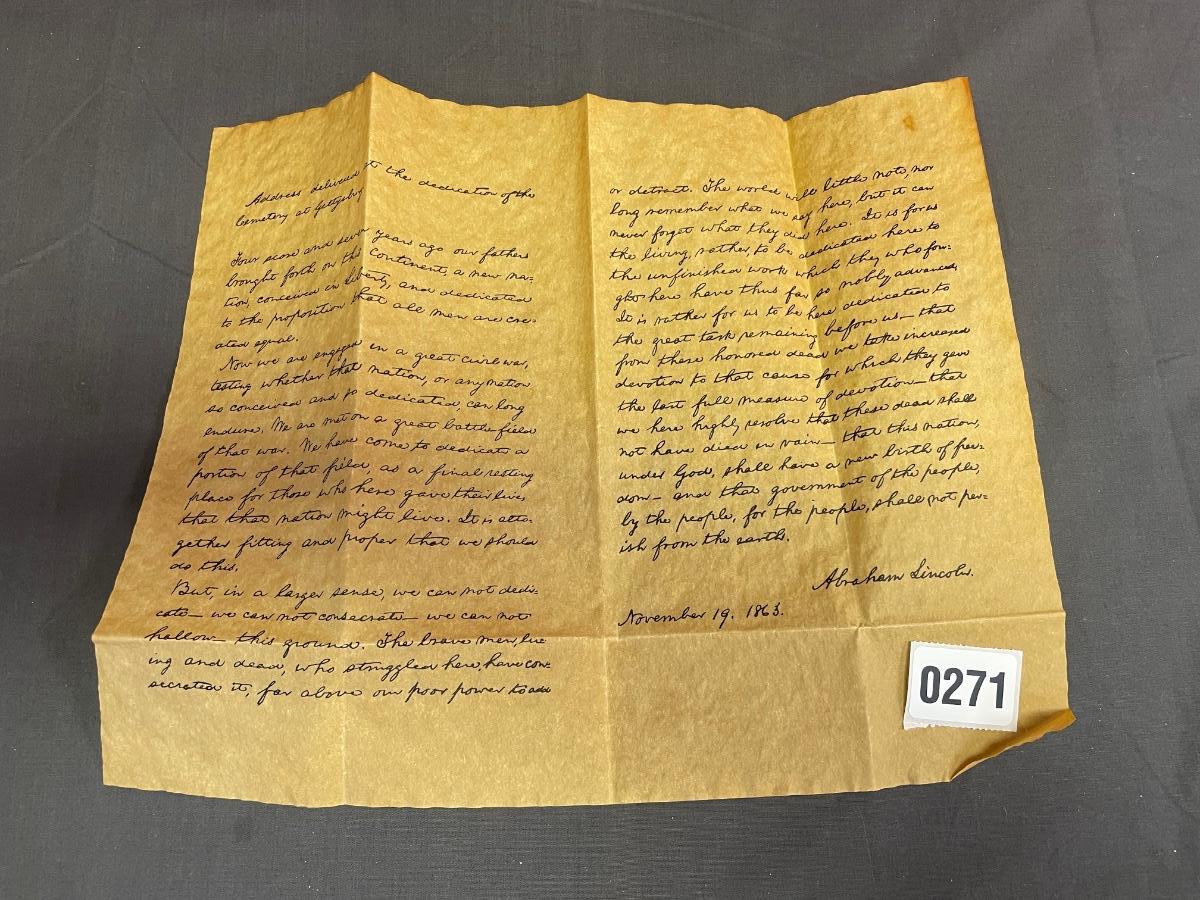 Address delivered at the dedication of the
Cemetery at Gettysburg
Four score and seven years ago our fathers
brought forth on this continent, a new na=
tion, conceived in liberty, and dedicated
to the proposition that all men are cre=
ated equal.
Now we are engaged in a great civil war,
testing whether that nation, or any nation
so conceived and so dedicated, can long
endure. We are met on a great battle field
of that war. We have come to dedicate a
portion of that field, as a final resting
place for those who here gave their lives
that that nation might live. It is alto=
gether fitting and proper that we should
do this.
But, in a larger sense, we can not dedi=
cate — we can not consecrate — we can not
hallow — this ground. The brave men, liv=
ing and dead, who struggled here, have con=
secrated it, far above our poor power to add
or detract. The world will little note, nor
long remember what we say here, but it can
never forget what they did here. It is for us
the living, rather, to be dedicated here to
the unfinished work which they who fou=
ght here have thus far so nobly advanced.
It is rather for us to be here dedicated to
the great task remaining before us — that
from these honored dead we take increased
devotion to that cause for which they gave
the last full measure of devotion — that
we here highly resolve that these dead shall
not have died in vain — that this nation,
under God, shall have a new birth of free=
dom — and that government of the people,
by the people, for the people, shall not per=
ish from the earth.
Abraham Lincoln.
November 19, 1863.
0271